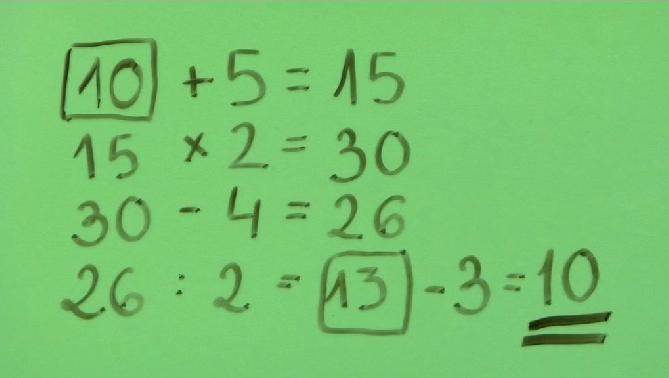 10 + 5 = 15
15 × 2 = 30
30 - 4 = 26
26 : 2 = 13 - 3 = 10